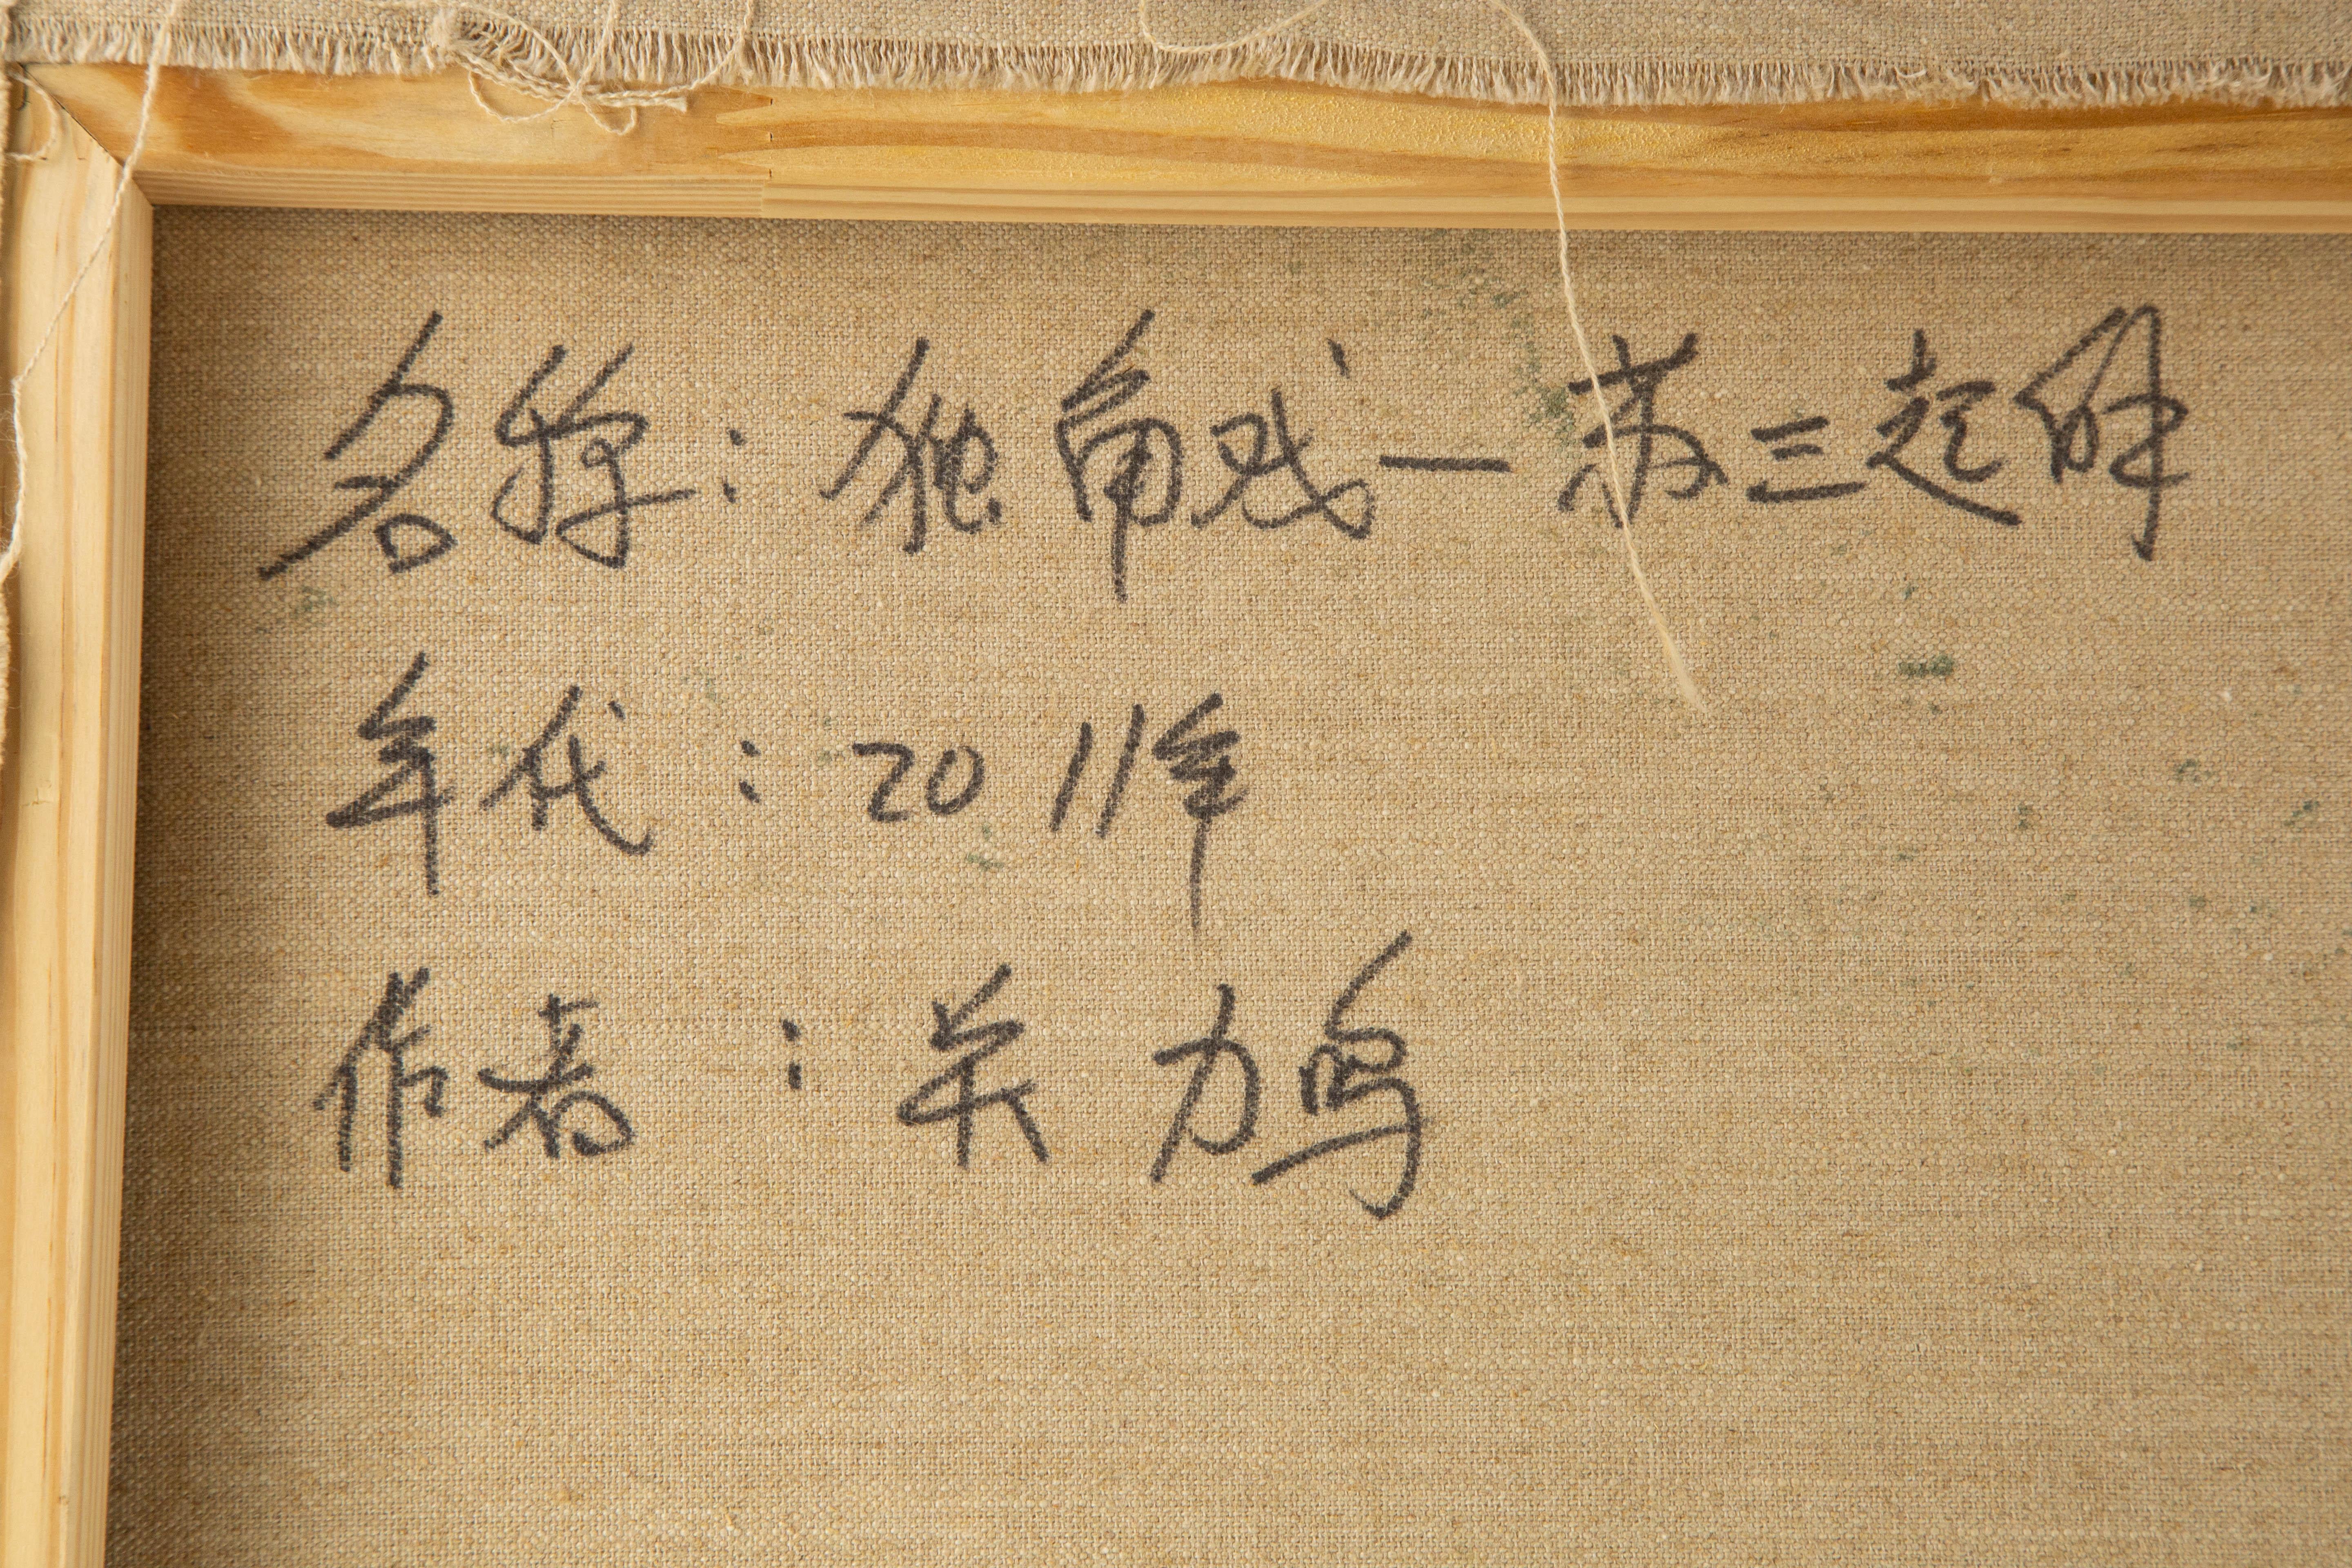 名称：独角戏—苏三起解
年代：2011年
作者：关力鸣